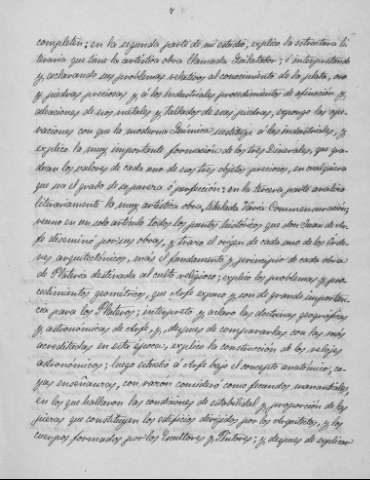 completen; en la segunda parte de mi estudio, explico la estructura li
teraria que tiene la artística obra llamada Quilatador; é interpretando
y aclarando sus problemas relativos al conocimiento de la plata, oro
y piedras preciosas y á los industriales procedimientos de afinación y
aleaciones de esos metales y tallados de esas piedras, expongo las ope-
raciones con que la moderna Química sustituye á las industriales, y
explico la muy importante formación de los tres Dinerales, que gra-
duan los valores de cada uno de esos tres objetos preciosos, en cualquiera
que sea el grado de su pureza ó perfección; en la tercera parte analizo
literariamente la muy artística obra, titulada Varia Commensuración;
reuno en un solo artículo todos los puntos históricos que don Juan de Ar-
fe diseminó por sus obras, y trazo el origen de cada uno de los órde-
nes arquitectónicos, más el fundamento y principio de cada obra
de Platería destinada al culto religioso; explico los problemas y pro-
cedimientos geométricos, que Arfe expuso y son de grande importan-
cia para los Plateros; interpreto y aclaro las doctrinas geográficas
y astronómicas de Arfe, y, después de compararlas con las más
acreditadas en esta época, explico la construcción de los relojes
astronómicos; luego estudio á Arfe bajo el concepto anatómico, cu-
yas enseñanzas, con razon consideró como fecundos manantiales,
en los que hallaron las condiciones de estabilidad y proporción de las
piezas que constituyen los edificios dirigidos por los Arquitectos, y los
cuerpos formados por los Escultores y Pintores; y después de explicar